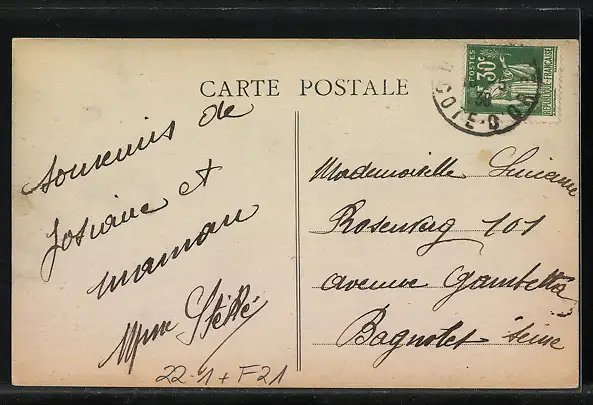 CARTE POSTALE
POSTES
30c
REPUBLIQUE FRANÇAISE
COTE-D'OR
souvenirs de
Josiane et
maman
Mme
22-1 + F21
Mademoiselle
Rosenberg 101
avenue Gambetta
Bagnolet Seine